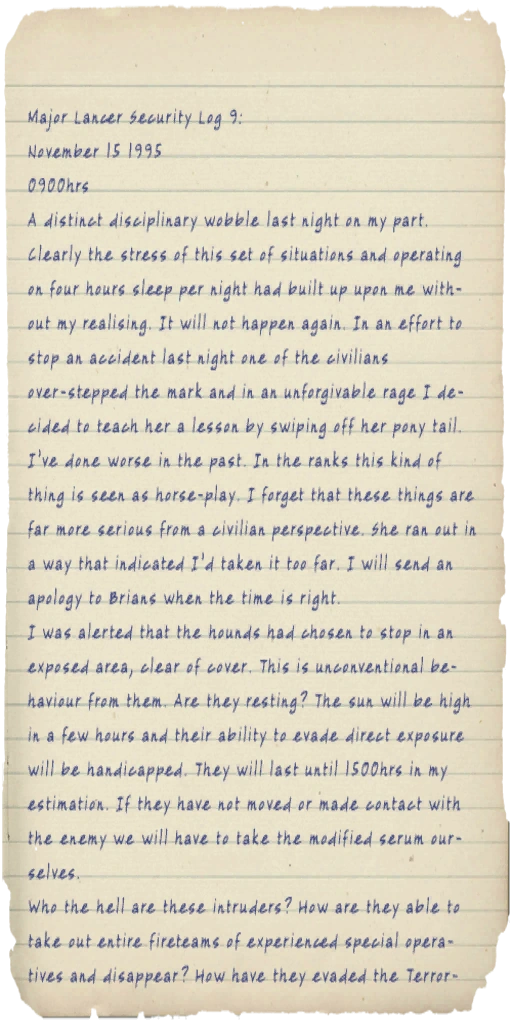 Major Lancer Security Log 9:
November 15 1995
0900hrs
A distinct disciplinary wobble last night on my part.
Clearly the stress of this set of situations and operating
on four hours sleep per night had built up upon me with-
out my realising. It will not happen again. In an effort to
stop an accident last night one of the civilians
over-stepped the mark and in an unforgivable rage I de-
cided to teach her a lesson by swiping off her pony tail.
I've done worse in the past. In the ranks this kind of
thing is seen as horse-play. I forget that these things are
far more serious from a civilian perspective. She ran out in
a way that indicated I'd taken it too far. I will send an
apology to Brians when the time is right.
I was alerted that the hounds had chosen to stop in an
exposed area, clear of cover. This is unconventional be-
haviour from them. Are they resting? The sun will be high
in a few hours and their ability to evade direct exposure
will be handicapped. They will last until 1500hrs in my
estimation. If they have not moved or made contact with
the enemy we will have to take the modified serum our-
selves.
Who the hell are these intruders? How are they able to
take out entire fireteams of experienced special opera-
tives and disappear? How have they evaded the Terror-